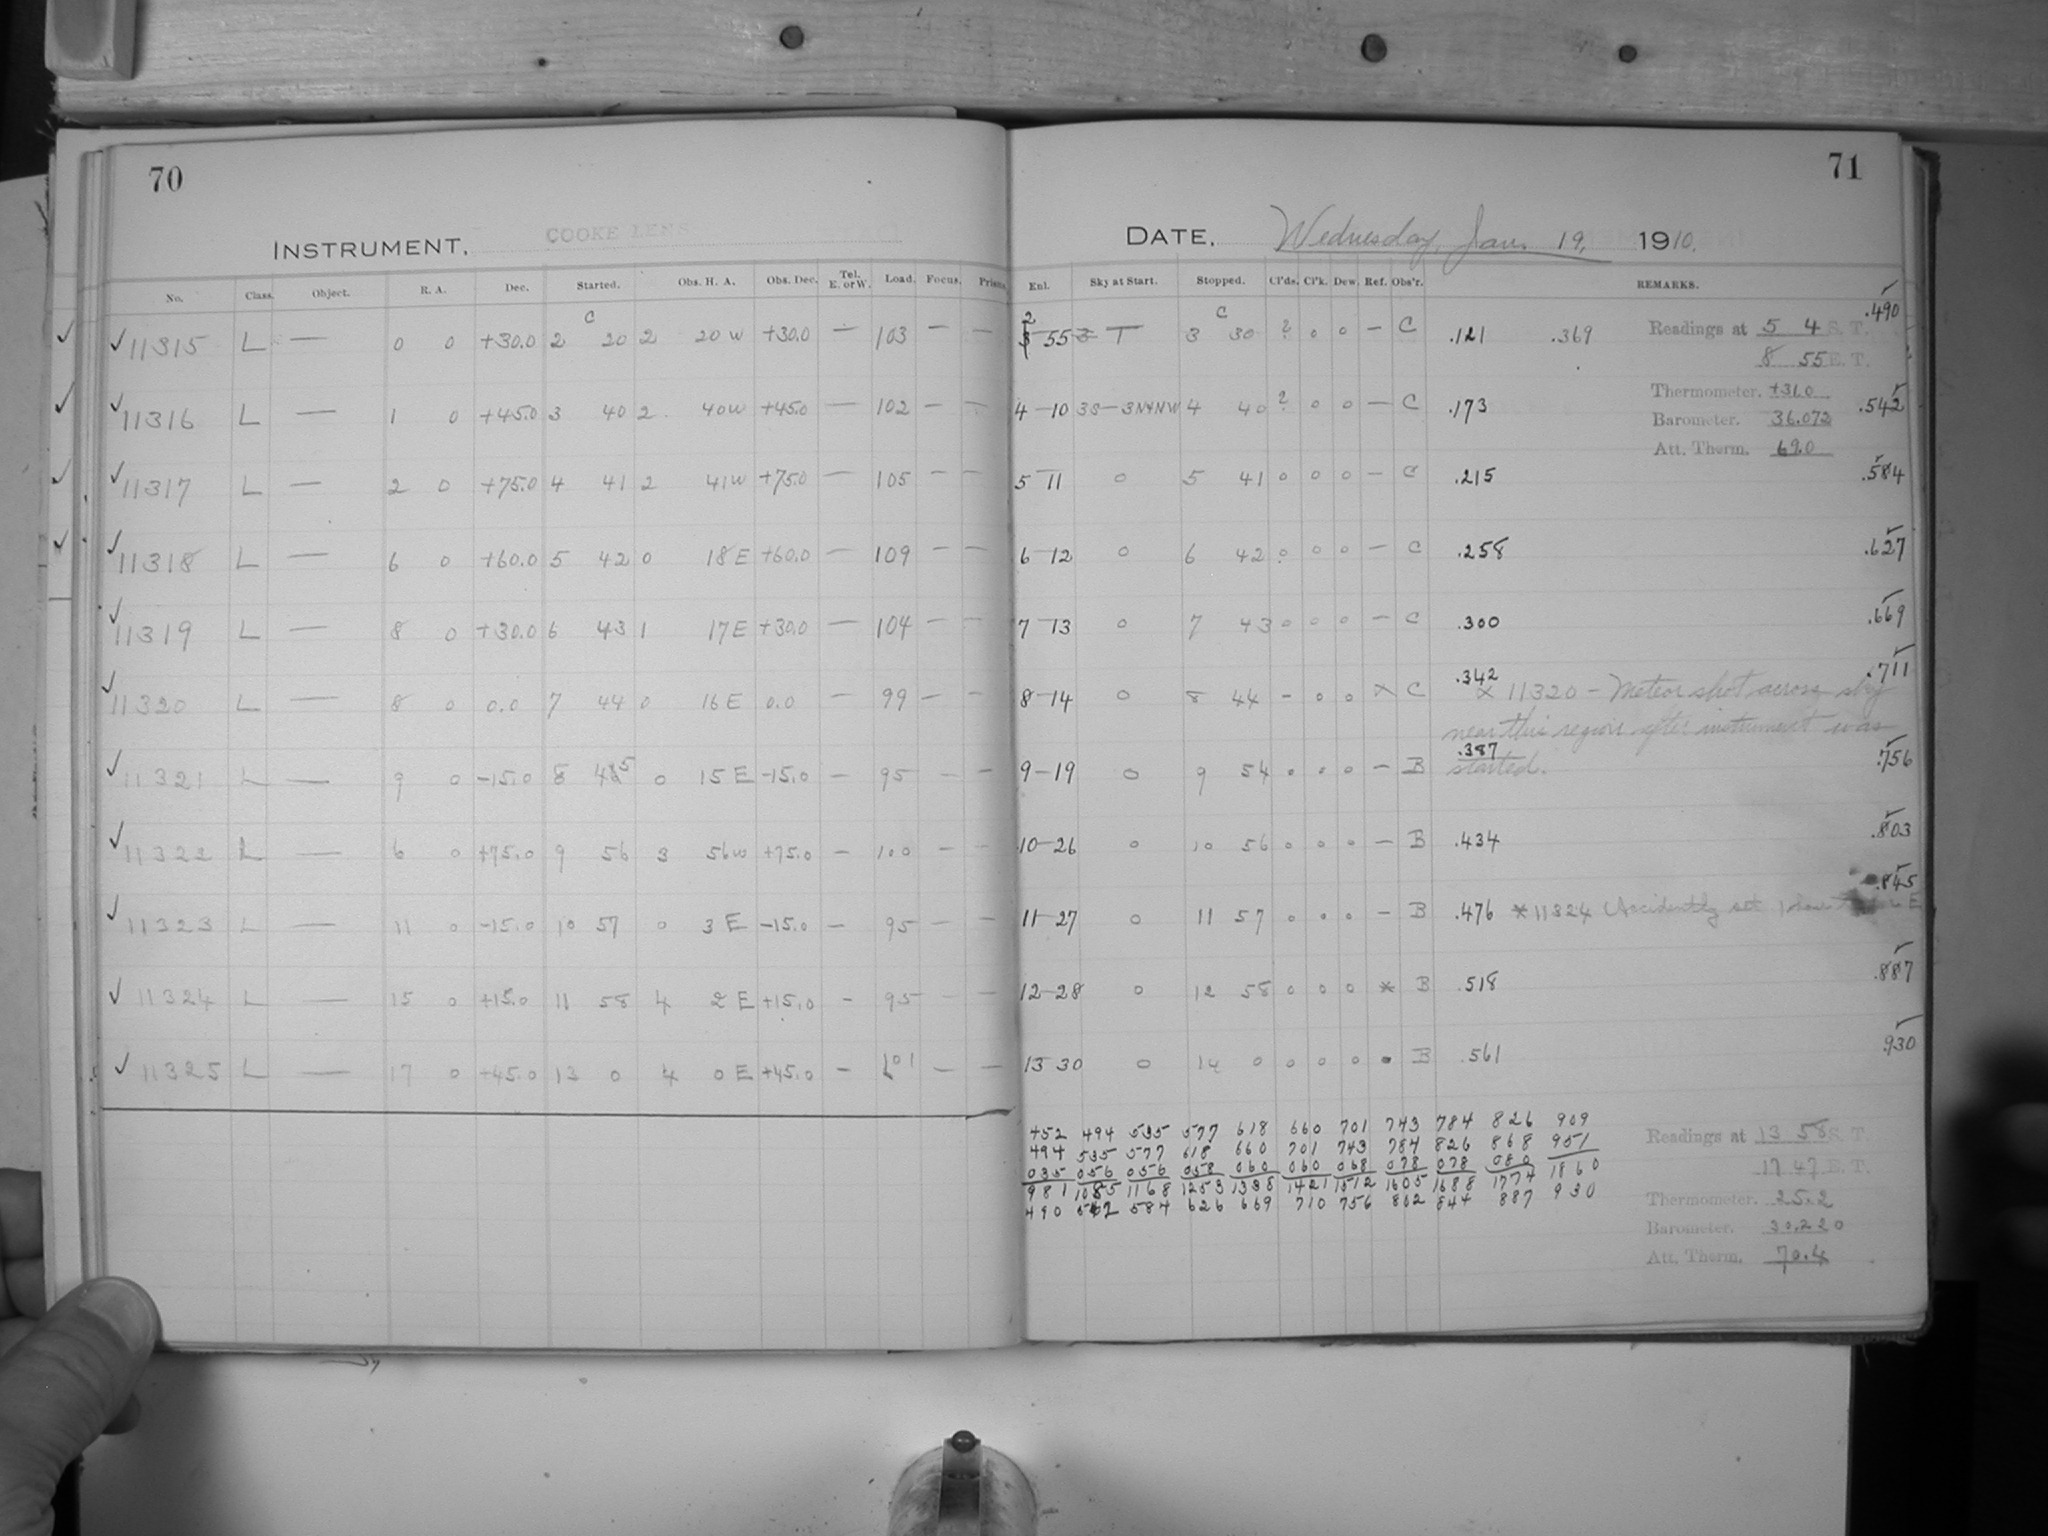 70
INSTRUMENT, COOKE LENS
No. Class. Object. R. A. Dec. Started. Obs. H. A. Obs. Dec. Tel. E. or W. Load. Focus. Prism.
✓ ✓ 11315 L — 0 0 +30.0 2 C 20 2 20 W +30.0 — 103 — —
✓ ✓ 11316 L — 1 0 +45.0 3 40 2 40 W +45.0 — 102 — —
✓ ✓ 11317 L — 2 0 +75.0 4 41 2 41 W +75.0 — 105 — —
✓ ✓ 11318 L — 6 0 +60.0 5 42 0 18 E +60.0 — 109 — —
✓ 11319 L — 8 0 +30.0 6 43 1 17 E +30.0 — 104 — —
✓ 11320 L — 8 0 0.0 7 44 0 16 E 0.0 — 99 — —
✓ 11321 L — 9 0 -15.0 8 45 0 15 E -15.0 — 95 — —
✓ 11322 L — 6 0 +75.0 9 56 3 56 W +75.0 — 100 — —
✓ 11323 L — 11 0 -15.0 10 57 0 3 E -15.0 — 95 — —
✓ 11324 L — 15 0 +15.0 11 58 4 2 E +15.0 — 95 — —
✓ 11325 L — 17 0 +45.0 13 0 4 0 E +45.0 — 101 — —
71
DATE, Wednesday, Jan. 19, 1910.
Enl. Sky at Start. Stopped. Cl'ds. Cl'k. Dew. Ref. Obs'r. REMARKS.
2 55 3 T 3 C 30 ? 0 0 — C .121 .369 .490
Readings at 5 4 S. T.
8 55 E. T.
4—10 3S—3N+NW 4 40 ? 0 0 — C .173 .542
Thermometer. +31.0
Barometer. 36.072
Att. Therm. 69.0
5 11 0 5 41 0 0 0 — C .215 .584
6—12 0 6 42 0 0 0 — C .258 .627
7—13 0 7 43 0 0 0 — C .300 .669
8—14 0 8 44 — 0 0 X C .342 .711
X 11320 — Meteor shot across sky
near this region after instrument was
started.
9—19 0 9 54 0 0 0 — B .387 .756
10—26 0 10 56 0 0 0 — B .434 .803
11—27 0 11 57 0 0 0 — B .476 .845
* 11324 Accidently set 1 hour E
12—28 0 12 58 0 0 0 * B .518 .887
13 30 0 14 0 0 0 0 B .561 .930
452 494 535 577 618 660 701 743 784 826 909
494 535 577 618 660 701 743 784 826 868 951
035 056 056 058 060 060 068 078 078 080 1860
981 1085 1168 1253 1338 1421 1512 1605 1688 1774 930
490 542 584 626 669 710 756 802 844 887
Readings at 13 58 S. T.
17 47 E. T.
Thermometer. 25.2
Barometer. 30.220
Att. Therm. 70.4